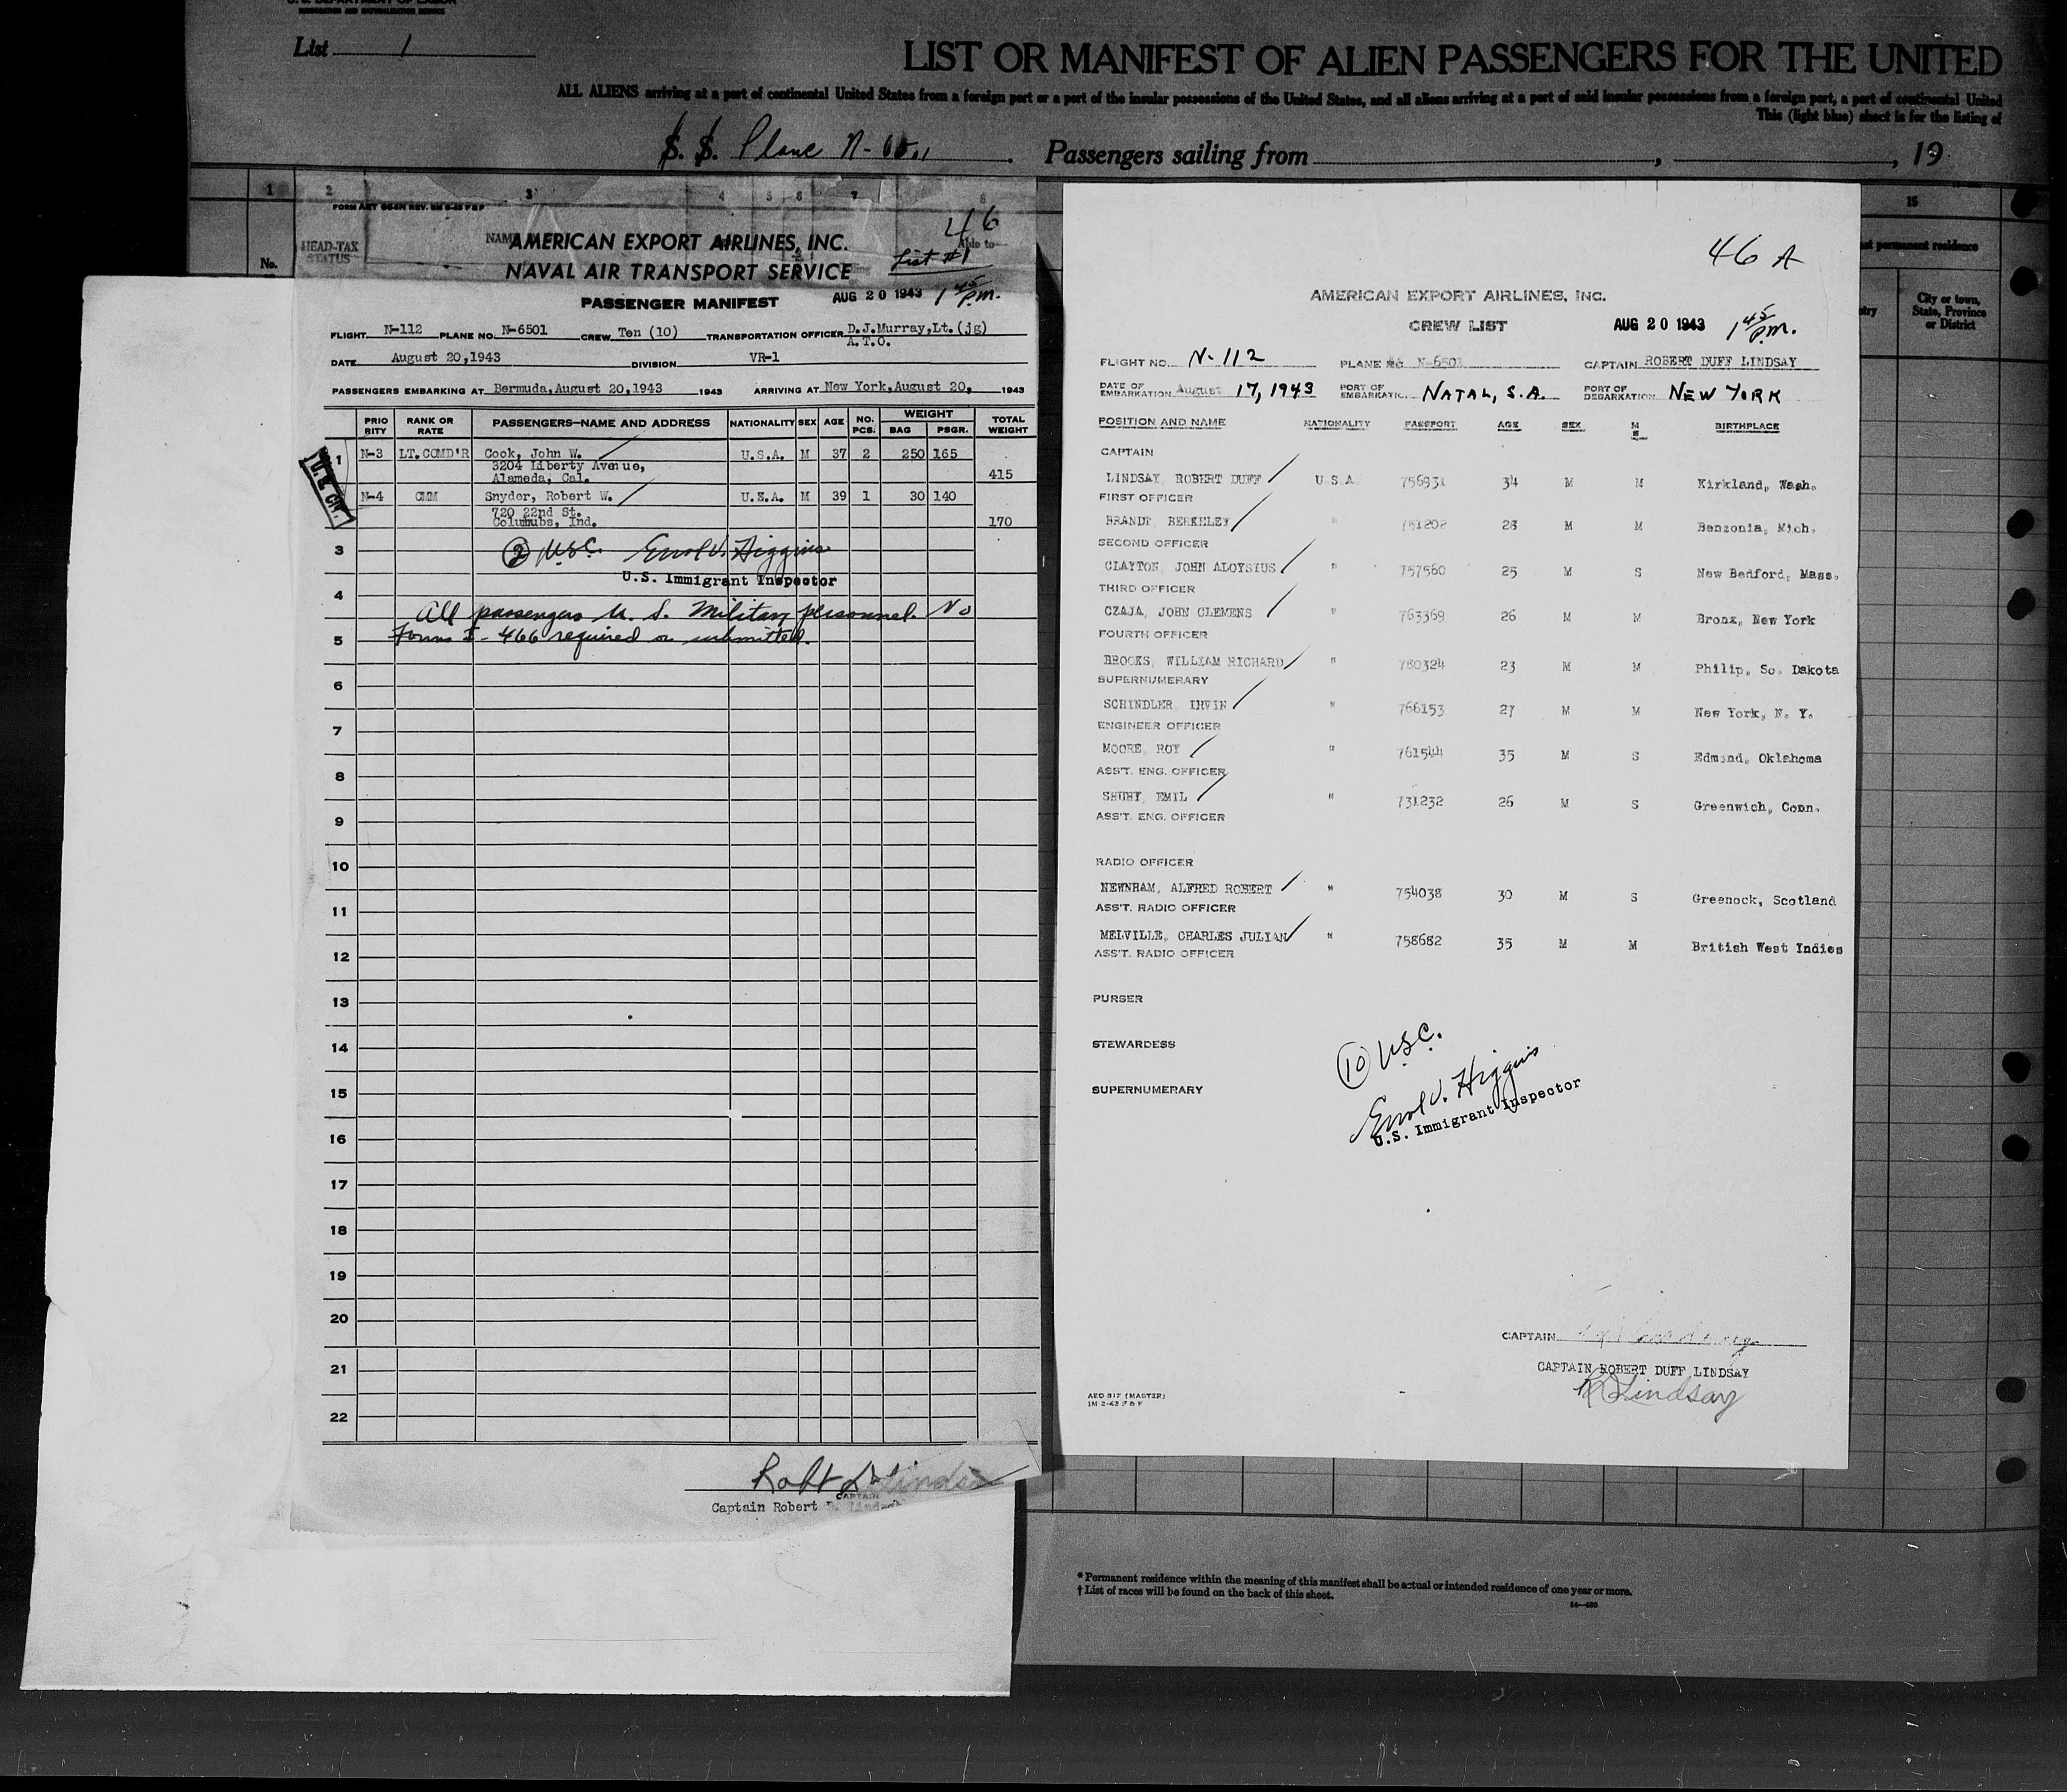 U. S. DEPARTMENT OF LABOR
IMMIGRATION AND NATURALIZATION SERVICE
List 1
LIST OR MANIFEST OF ALIEN PASSENGERS FOR THE UNITED
ALL ALIENS arriving at a port of continental United States from a foreign port or a port of the insular possessions of the United States, and all aliens arriving at a port of said insular possessions from a foreign port, a port of continental United
This (light blue) sheet is for the listing of
S. S. Plane N- . Passengers sailing from , , 19
1 2 3 4 5 6 7 8 15
HEAD-TAX STATUS
No.
Able to
permanent residence
City or town, State, Province or District
46
AMERICAN EXPORT AIRLINES, INC.
NAVAL AIR TRANSPORT SERVICE List #1
PASSENGER MANIFEST AUG 20 1943 1 45 P.M.
FLIGHT N-112 PLANE NO. N-6501 CREW Ten (10) TRANSPORTATION OFFICER D.J.Murray,Lt.(jg)
A.T.O.
DATE August 20,1943 DIVISION VR-1
PASSENGERS EMBARKING AT Bermuda,August 20,1943 1943 ARRIVING AT New York,August 20, 1943
PRIORITY RANK OR RATE PASSENGERS—NAME AND ADDRESS NATIONALITY SEX AGE NO. PCS. WEIGHT BAG PSGR. TOTAL WEIGHT
1 N-3 LT.COMD'R Cook, John W. U.S.A. M 37 2 250 165
3204 Liberty Avenue,
Alameda, Cal. 415
N-4 CMM Snyder, Robert W. U.S.A. M 39 1 30 140
720 22nd St.
Columubs, Ind. 170
3 (2) USC. Errol V. Higgins
U.S. Immigrant Inspector
4 All passengers U. S. Military personnel. No
5 Forms I-466 required or submitted.
6
7
8
9
10
11
12
13
14
15
16
17
18
19
20
21
22
Robt D Lindsay
CAPTAIN
Captain Robert D. Lindsay
46 A
AMERICAN EXPORT AIRLINES, INC.
CREW LIST AUG 20 1943 1 45 P.M.
FLIGHT NO. N-112 PLANE NO. N-6501 CAPTAIN ROBERT DUFF LINDSAY
DATE OF EMBARKATION August 17, 1943 PORT OF EMBARKATION NATAL, S.A. PORT OF DEBARKATION NEW YORK
POSITION AND NAME NATIONALITY PASSPORT AGE SEX M S BIRTHPLACE
CAPTAIN
LINDSAY, ROBERT DUFF U S A 756931 34 M M Kirkland, Wash.
FIRST OFFICER
BRANDT, BERKELEY " 751202 28 M M Benzonia, Mich.
SECOND OFFICER
CLAYTON, JOHN ALOYSIUS " 757560 25 M S New Bedford, Mass.
THIRD OFFICER
CZAJA, JOHN CLEMENS " 763369 26 M M Bronx, New York
FOURTH OFFICER
BROOKS, WILLIAM RICHARD " 780324 23 M M Philip, So. Dakota
SUPERNUMERARY
SCHINDLER, IRVIN " 766153 27 M M New York, N. Y.
ENGINEER OFFICER
MOORE, ROY " 761544 35 M S Edmond, Oklahoma
ASS'T. ENG. OFFICER
SHUBY, EMIL " 731232 26 M S Greenwich, Conn.
ASS'T. ENG. OFFICER
RADIO OFFICER
NEWNHAM, ALFRED ROBERT " 754038 30 M S Greenock, Scotland
ASS'T. RADIO OFFICER
MELVILLE, CHARLES JULIAN " 758682 35 M M British West Indies
ASS'T. RADIO OFFICER
PURSER
STEWARDESS
SUPERNUMERARY
(10) USC.
Errol V. Higgins
U.S. Immigrant Inspector
CAPTAIN
CAPTAIN ROBERT DUFF LINDSAY
RDLindsay
AEO 317 (MASTER)
1M 2-43 F & F
* Permanent residence within the meaning of this manifest shall be actual or intended residence of one year or more.
† List of races will be found on the back of this sheet.